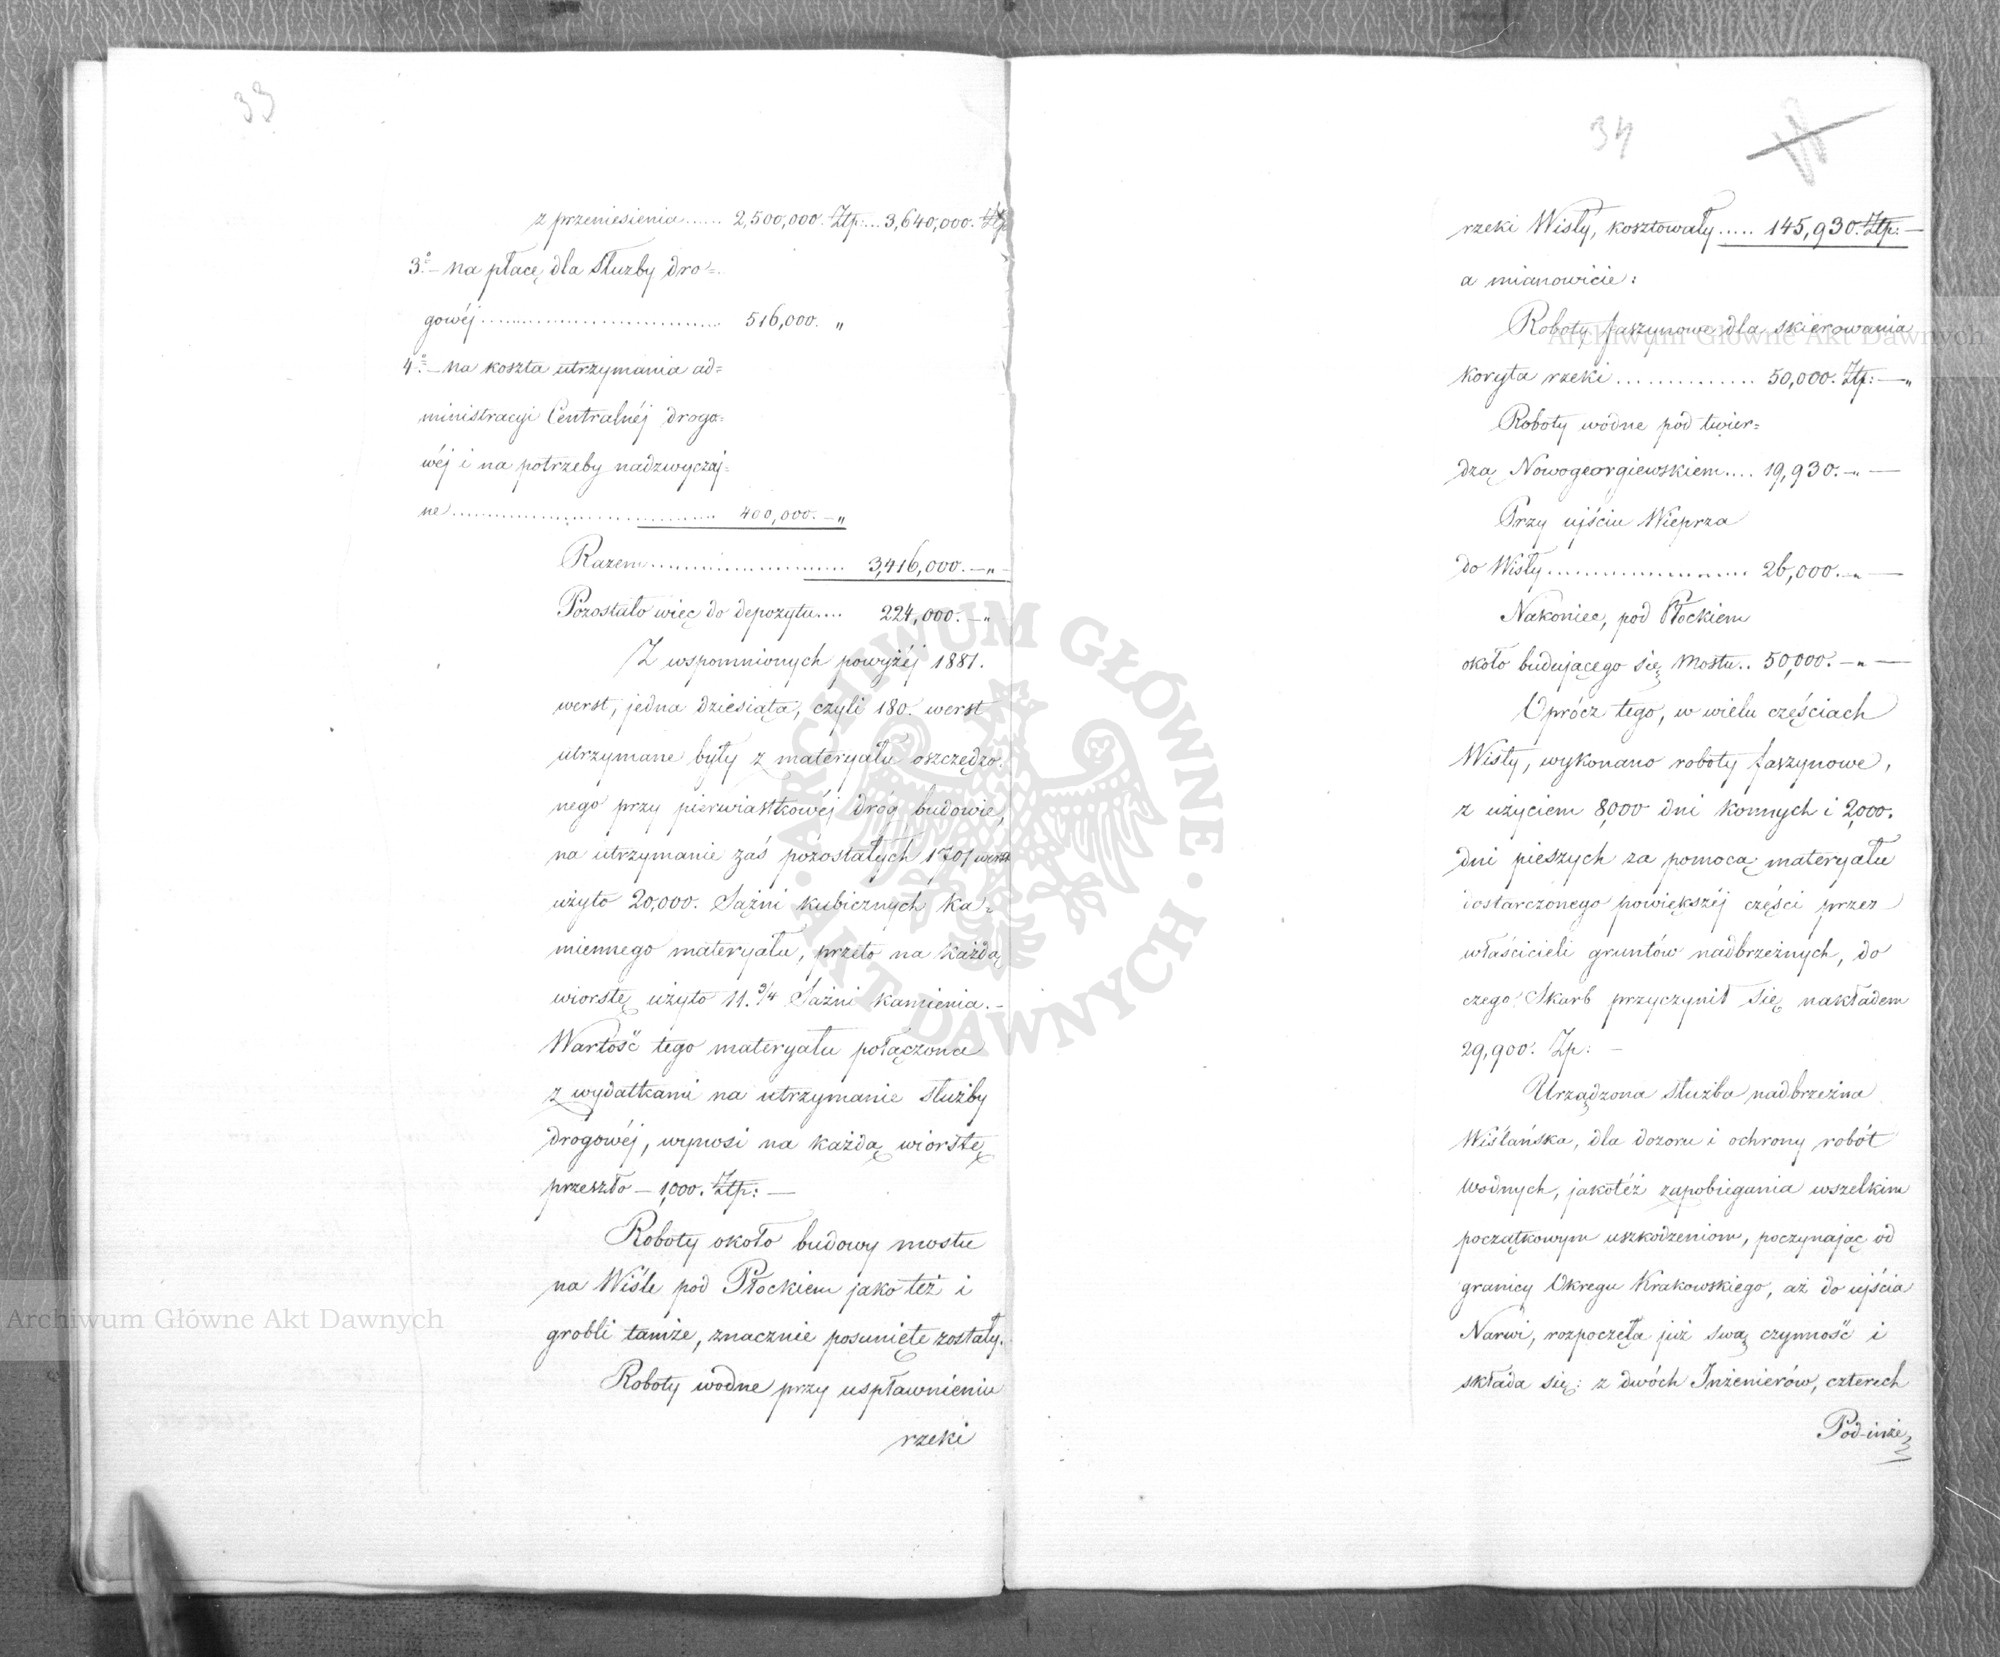 33
z przeniesienia ...... 2,500,000. Złp:... 3,640,000. Złp
3.o – na płacę dla Służby dro=
gowéj .............................. 516,000. „
4.o – na koszta utrzymania ad=
ministracyi Centralnéj drogo=
wéj i na potrzeby nadzwyczaj=
ne .............................. 400,000. – „
Razem ...................... 3,416,000. – „ –
Pozostało więc do depozytu .... 224,000. – „
Z wspomnionych powyżéj 1881.
werst, jedna dziesiąta, czyli 180. werst
utrzymane były z materyału oszczędzo=
nego przy pierwiastkowéj dróg budowie,
na utrzymanie zaś pozostałych 1701 werst
użyto 20,000. Sążni kubicznych ka=
miennego materyału, przeto na każdą
wiorstę użyto 11. 3/4 Sążni kamienia. –
Wartość tego materyału połączona
z wydatkami na utrzymanie służby
drogowéj, wynosi na każdą wiorstę
przeszło – 1,000. Złp: –
Roboty około budowy mostu
na Wiśle pod Płockiem jako też i
grobli tamże, znacznie posunięte zostały.
Roboty wodne przy uspławnieniu
rzeki
34
rzeki Wisły, kosztowały ..... 145,930. Złp: –
a mianowicie:
Roboty faszynowe dla skierowania
koryta rzeki .............. 50,000. Złp: – „
Roboty wodne pod twier=
dzą Nowogeorgiewskiem .... 19,930. – „ –
Przy ujściu Wieprza
do Wisły .................... 26,000. – „ –
Nakoniec, pod Płockiem
około budującego się Mostu .. 50,000. – „ –
Oprócz tego, w wielu częściach
Wisły, wykonano roboty faszynowe,
z użyciem 8,000 dni konnych i 2,000.
dni pieszych za pomocą materyału
dostarczonego powiększéj części przez
właścicieli gruntów nadbrzeżnych, do
czego Skarb przyczynił się nakładem
29,900. Zp: –
Urządzona służba nadbrzeżna
Wiślańska, dla dozoru i ochrony robót
wodnych, jakotéż zapobiegania wszelkim
początkowym uszkodzeniom, poczynając od
granicy Okręgu Krakowskiego, aż do ujścia
Narwi, rozpoczęła już swą czynność i
składa się: z dwóch Inżenierów, czterech
Pod-inże
Archiwum Główne Akt Dawnych
Archiwum Główne Akt Dawnych
ARCHIWUM GŁÓWNE · AKT DAWNYCH ·